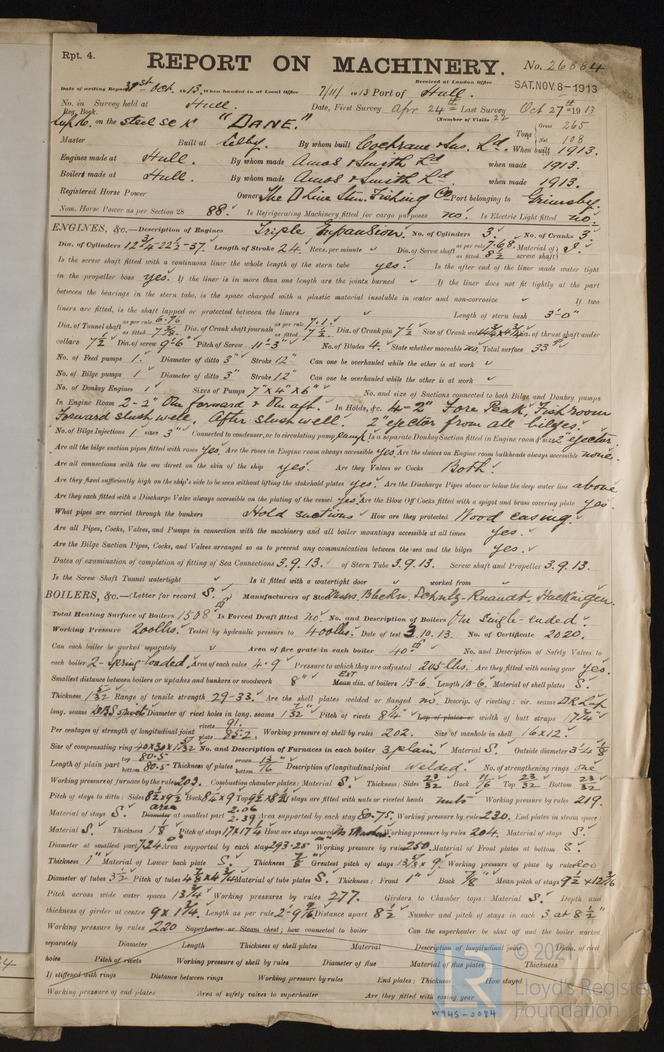 Rpt. 4.
REPORT ON MACHINERY. No. 26664
Received at London Office SAT. NOV. 8 - 1913
Date of writing Report 31st Oct. 1913 When handed in at Local Office 7/11/1913 Port of Hull.
No. in Reg. Book. Survey held at Hull. Date, First Survey Apr 24th Last Survey Oct 27th 1913
(Number of Visits 22
on the steel sc K "DANE." Tons Gross 265 Net 108
Master Built at Selby. By whom built Cochrane & Sons Ld. When built 1913.
Engines made at Hull. By whom made Amos & Smith Ld when made 1913.
Boilers made at Hull. By whom made Amos & Smith Ld. when made 1913.
Registered Horse Power Owners The D Line Stm. Fishing Co Port belonging to Grimsby.
Nom. Horse Power as per Section 28 88. Is Refrigerating Machinery fitted for cargo purposes no. Is Electric Light fitted no
ENGINES, &c.—Description of Engines Triple Expansion. No. of Cylinders 3. No. of Cranks 3
Dia. of Cylinders 12 3/4-22 1/2-37. Length of Stroke 24. Revs. per minute Dia. of Screw shaft as per rule 7.68 as fitted 8 1/2 Material of screw shaft) S.
Is the screw shaft fitted with a continuous liner the whole length of the stern tube yes. Is the after end of the liner made water tight
in the propeller boss yes. If the liner is in more than one length are the joints burned If the liner does not fit tightly at the part
between the bearings in the stern tube, is the space charged with a plastic material insoluble in water and non-corrosive If two
liners are fitted, is the shaft lapped or protected between the liners Length of stern bush 3'-0"
Dia. of Tunnel shaft as per rule 6.76 as fitted 7 3/8 Dia. of Crank shaft journals as per rule 7.1 as fitted 7 1/2 Dia. of Crank pin 7 1/2 Size of Crank webs Dia. of thrust shaft under
collars 7 1/2 Dia. of screw 9'-6" Pitch of Screw 11'-3" No. of Blades 4. State whether moveable no. Total surface 33
No. of Feed pumps 1. Diameter of ditto 3" Stroke 12" Can one be overhauled while the other is at work
No. of Bilge pumps 1 Diameter of ditto 3" Stroke 12" Can one be overhauled while the other is at work
No. of Donkey Engines 1 Sizes of Pumps 7" x 4" x 6" No. and size of Suctions connected to both Bilge and Donkey pumps
In Engine Room 2-2" One forward & One aft. In Holds, &c. 4-2" Fore Peak, Fish room
Forward slush well, After slush well. 2" ejector from all bilges.
No. of Bilge Injections 1 sizes 3" Connected to condenser, or to circulating pump pump Is a separate Donkey Suction fitted in Engine room & size 2" ejector
Are all the bilge suction pipes fitted with roses yes. Are the roses in Engine room always accessible yes. Are the sluices on Engine room bulkheads always accessible none.
Are all connections with the sea direct on the skin of the ship yes. Are they Valves or Cocks Both.
Are they fixed sufficiently high on the ship's side to be seen without lifting the stokehold plates yes. Are the Discharge Pipes above or below the deep water line above
Are they each fitted with a Discharge Valve always accessible on the plating of the vessel yes. Are the Blow Off Cocks fitted with a spigot and brass covering plate yes.
What pipes are carried through the bunkers Hold suctions How are they protected Wood casing.
Are all Pipes, Cocks, Valves, and Pumps in connection with the machinery and all boiler mountings accessible at all times yes.
Are the Bilge Suction Pipes, Cocks, and Valves arranged so as to prevent any communication between the sea and the bilges yes.
Dates of examination of completion of fitting of Sea Connections 3.9.13. of Stern Tube 3.9.13. Screw shaft and Propeller 3.9.13.
Is the Screw Shaft Tunnel watertight Is it fitted with a watertight door worked from
BOILERS, &c.—(Letter for record S. Manufacturers of Steel
Total Heating Surface of Boilers 1508 Is Forced Draft fitted no. No. and Description of Boilers One single-ended.
Working Pressure 200lbs. Tested by hydraulic pressure to 400lbs. Date of test 3.10.13. No. of Certificate 2020.
Can each boiler be worked separately Area of fire grate in each boiler 40 No. and Description of Safety Valves to
each boiler 2-Spring loaded. Area of each valve 4.9 Pressure to which they are adjusted 205lbs. Are they fitted with easing gear yes.
Smallest distance between boilers or uptakes and bunkers or woodwork 8" dia. of boilers 13-6. Length 10-6. Material of shell plates S.
Thickness 1 5/32 Range of tensile strength 29-33. Are the shell plates welded or flanged no. Descrip. of riveting: cir. seams
long. seams Diameter of rivet holes in long. seams 1 5/32" Pitch of rivets 8 1/4 Lap of plates or width of butt straps 17 1/4
Per centages of strength of longitudinal joint rivets 91. plate 85.2. Working pressure of shell by rules 202. Size of manhole in shell 16x12.
Size of compensating ring No. and Description of Furnaces in each boiler 3 plain Material S. Outside diameter
Length of plain part top 80.5" bottom 80.5" Thickness of plates crown bottom 13/16 Description of longitudinal joint welded. No. of strengthening rings one
Working pressure of furnace by the rules 203. Combustion chamber plates: Material S. Thickness: Sides 23/32 Back 11/16 Top 23/32 Bottom 23/32
Pitch of stays to ditto: Sides Back 8 1/4 x 9 Top If stays are fitted with nuts or riveted heads nuts Working pressure by rules 219.
Material of stays S. Diameter at smallest part 2.06 2.39 Area supported by each stay 80.75. Working pressure by rules 230. End plates in steam space
Material S. Thickness 1 1/8 Pitch of stays 17x17 1/4 How are stays secured Working pressure by rules 204. Material of stays S.
Diameter at smallest part 7.24 Area supported by each stay 293.25 Working pressure by rules 250. Material of Front plates at bottom S.
Thickness 1" Material of Lower back plate S. Thickness 7/8 Greatest pitch of stays 13 7/8 x 9 Working pressure of plate by rules 200
Diameter of tubes 3 1/2 Pitch of tubes Material of tube plates S. Thickness: Front 1" Back 7/8" Mean pitch of stays
Pitch across wide water spaces 13 3/4 Working pressures by rules 277. Girders to Chamber tops: Material S. Depth and
thickness of girder at centre 9 x 1 3/4. Length as per rule Distance apart 8 3/4 Number and pitch of stays in each 3 at 8 1/2"
Working pressure by rules 220 Superheater or Steam chest; how connected to boiler Can the superheater be shut off and the boiler worked
separately Diameter Length Thickness of shell plates Material Description of longitudinal joint Diam. of rivet
holes Pitch of rivets Working pressure of shell by rules Diameter of flue Material of flue plates Thickness
If stiffened with rings Distance between rings Working pressure by rules End plates: Thickness How stayed
Working pressure of end plates Area of safety valves to superheater Are they fitted with easing gear
© 2021
Lloyd's Register
Foundation
W945-0084